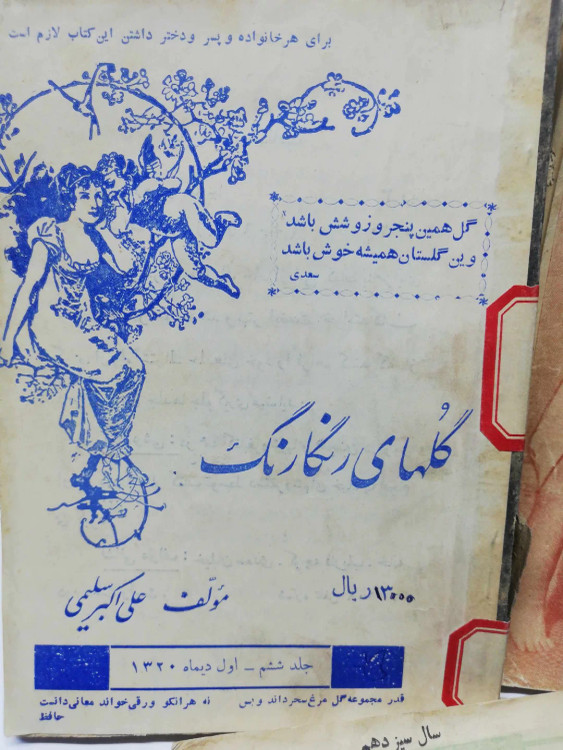 برای هر خانواده و پسر و دختر داشتن این کتاب لازم است
گل همین پنجروز و شش باشد
وین گلستان همیشه خوش باشد
سعدی
گلهای رنگارنگ
۱۳۰۰۰ ریال
مؤلف علی اکبر سلیمی
جلد ششم - اول دیماه ۱۳۲۰
قدر مجموعه گل مرغ سحر داند و بس نه هر انکو ورقی خواند معانی دانست
حافظ
سال سیزدهم